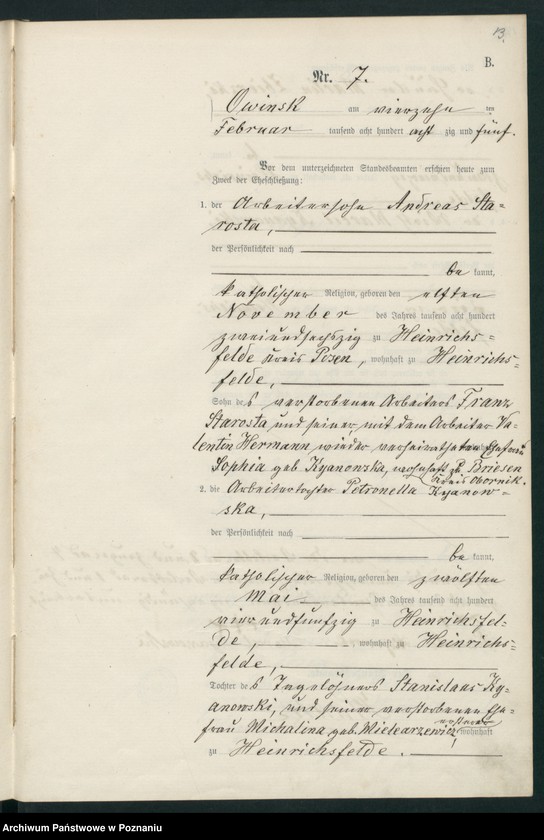 13.
B.
Nr. 7.
Owinsk am vierzehn ten
Februar tausend acht hundert acht zig und fünf.
Vor dem unterzeichneten Standesbeamten erschien heute zum
Zweck der Eheschließung:
1. der Arbeitersohn Andreas Sta=
rosta,
der Persönlichkeit nach
be kannt,
katholischer Religion, geboren den elften
November des Jahres tausend acht hundert
zweiundsechszig zu Heinrichs=
felde Kreis Posen, wohnhaft zu Heinrichs=
felde,
Sohn des verstorbenen Arbeiters Franz
Starosta und seiner, mit dem Arbeiter Va=
lentin Hermann wieder verheiratheten Ehefrau
Sophia geb Kyanowska, wohnhaft zu Briesen
Kreis Obornik.
2. die Arbeitertochter Petronella Kyanow=
ska,
der Persönlichkeit nach
be kannt,
katholischer Religion, geboren den zwölften
Mai des Jahres tausend acht hundert
vierundfunfzig zu Heinrichsfel=
de, wohnhaft zu Heinrichs=
felde,
Tochter des Tagelöhners Stanislaus Ky=
anowski, und seiner verstorbenen Ehe=
frau Michalina geb. Wielearzewicz, ersterer wohnhaft
zu Heinrichsfelde.
Archiwum Państwowe w Poznaniu